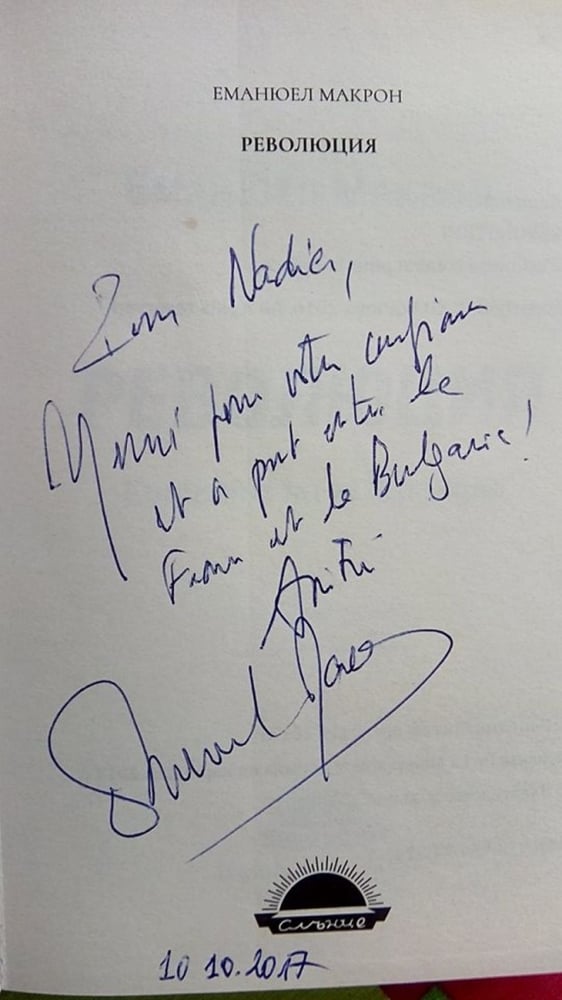 ЕМАНЮЕЛ МАКРОН
РЕВОЛЮЦИЯ
Pour Nadia,
Merci pour votre confiance
et ce pont entre la
France et la Bulgarie !
Amitié
слънце
10 10.2017